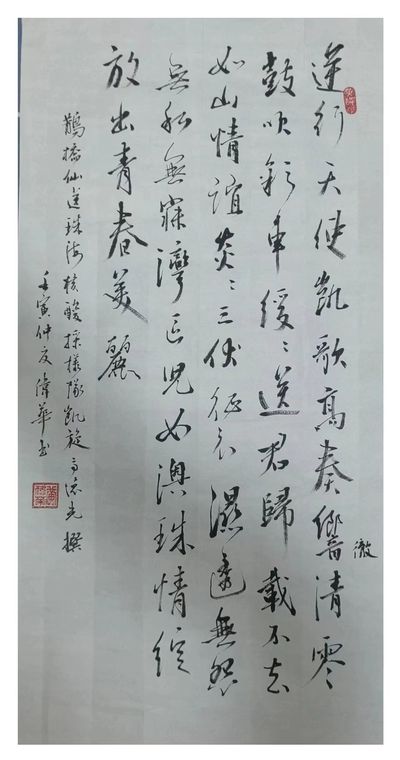 逆行天使凱歌高奏響清零
徹
鼓吹彩車緩〻送君歸載不去
如山情誼炎〻三伏征衣濕透無怨
無私無寐灣区兒女澳珠情綻
放出青春美麗
鵲橋仙送珠海核酸採樣隊凱旋光撰
壬寅仲夏偉華书